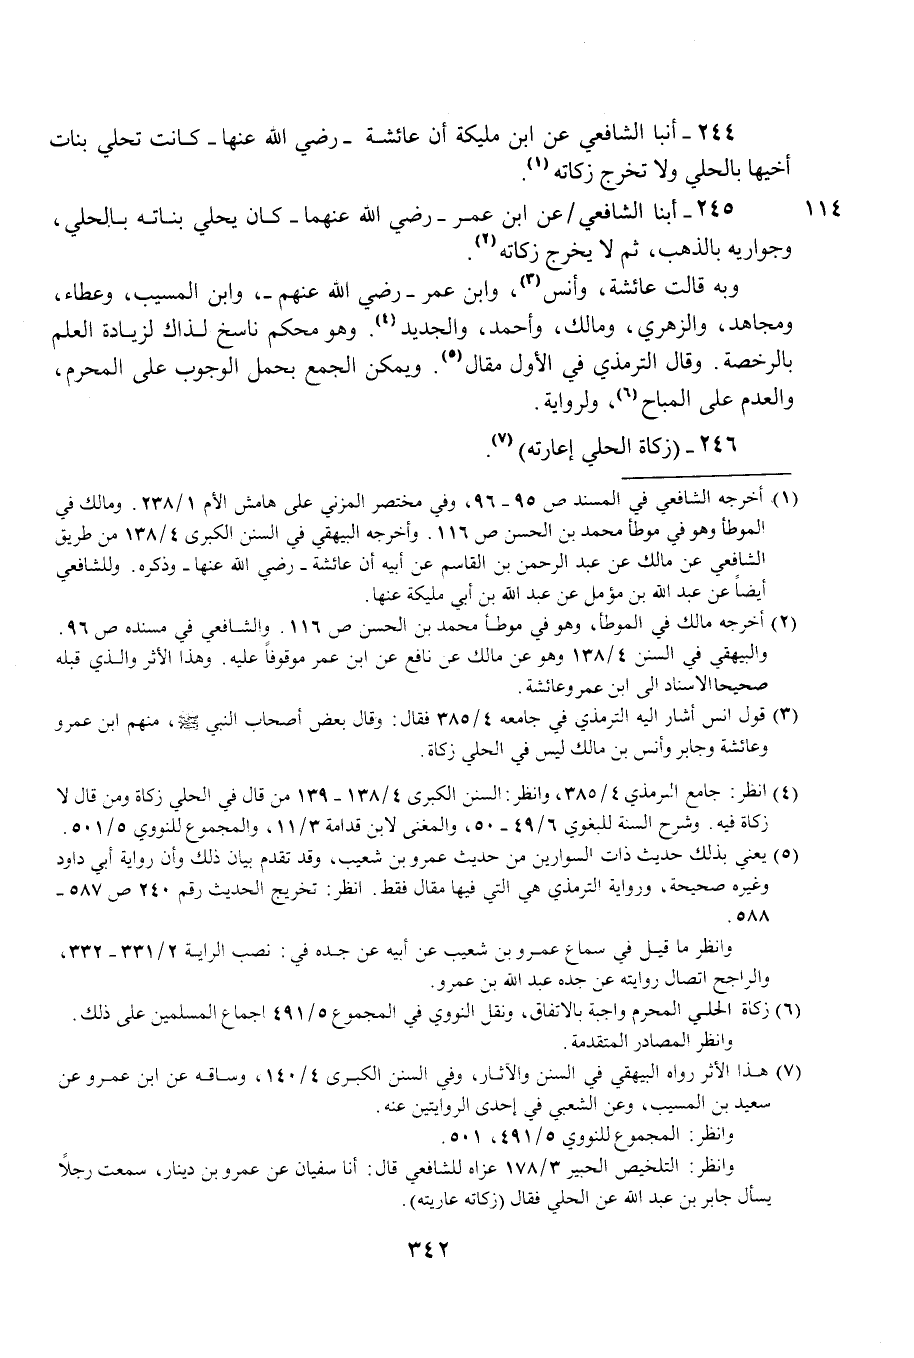 ٢٤٤ ـ أنبا الشافعي عن ابن مليكة أن عائشة ـ رضي الله عنها ـ كانت تحلي بنات
أخيها بالحلي ولا تخرج زكاته (١).
١١٤ ٢٤٥ ـ أبنا الشافعي/ عن ابن عمر ـ رضي الله عنهما ـ كان يحلي بناته بالحلي،
وجواريه بالذهب، ثم لا يخرج زكاته (٢).
وبه قالت عائشة، وأنس (٣)، وابن عمر ـ رضي الله عنهم ـ، وابن المسيب، وعطاء،
ومجاهد، والزهري، ومالك، وأحمد، والجديد (٤). وهو محكم ناسخ لذاك لزيادة العلم
بالرخصة. وقال الترمذي في الأول مقال (٥). ويمكن الجمع بحمل الوجوب على المحرم،
والعدم على المباح (٦)، ولرواية.
٢٤٦ ـ (زكاة الحلي إعارته) (٧).
(١) أخرجه الشافعي في المسند ص ٩٥ ـ ٩٦، وفي مختصر المزني على هامش الأم ٢٣٨/١. ومالك في
الموطأ وهو في موطأ محمد بن الحسن ص ١١٦. وأخرجه البيهقي في السنن الكبرى ١٣٨/٤ من طريق
الشافعي عن مالك عن عبد الرحمن بن القاسم عن أبيه أن عائشة ـ رضي الله عنها ـ وذكره. وللشافعي
أيضاً عن عبد الله بن مؤمل عن عبد الله بن أبي مليكة عنها.
(٢) أخرجه مالك في الموطأ، وهو في موطأ محمد بن الحسن ص ١١٦. والشافعي في مسنده ص ٩٦.
والبيهقي في السنن ١٣٨/٤ وهو عن مالك عن نافع عن ابن عمر موقوفاً عليه. وهذا الأثر والذي قبله
صحيحا الاسناد الى ابن عمر وعائشة.
(٣) قول انس أشار اليه الترمذي في جامعه ٣٨٥/٤ فقال: وقال بعض أصحاب النبي ﷺ، منهم ابن عمرو
وعائشة وجابر وأنس بن مالك ليس في الحلي زكاة.
(٤) انظر: جامع الرمذي ٣٨٥/٤، وانظر: السنن الكبرى ١٣٨/٤ ـ ١٣٩ من قال في الحلي زكاة ومن قال لا
زكاة فيه. وشرح السنة للبغوي ٤٩/٦ ـ ٥٠، والمغنى لابن قدامة ١١/٣، والمجموع للنووي ٥٠١/٥.
(٥) يعني بذلك حديث ذات السوارين من حديث عمرو بن شعيب، وقد تقدم بيان ذلك وأن رواية أبي داود
وغيره صحيحة، ورواية الترمذي هي التي فيها مقال فقط. انظر: تخريج الحديث رقم ٢٤٠ ص ٥٨٧ ـ
٥٨٨.
وانظر ما قيل في سماع عمرو بن شعيب عن أبيه عن جده في: نصب الراية ٣٣١/٢ ـ ٣٣٢،
والراجح اتصال روايته عن جده عبد الله بن عمرو.
(٦) زكاة الحلي المحرم واجبة بالاتفاق، ونقل النووي في المجموع ٤٩١/٥ اجماع المسلمين على ذلك.
وانظر المصادر المتقدمة.
(٧) هذا الأثر رواه البيهقي في السنن والآثار، وفي السنن الكبرى ١٤٠/٤، وساقه عن ابن عمرو عن
سعيد بن المسيب، وعن الشعبي في إحدى الروايتين عنه.
وانظر: المجموع للنووي ٤٩١/٥، ٥٠١.
وانظر: التلخيص الحبير ١٧٨/٣ عزاه للشافعي قال: أنا سفيان عن عمرو بن دينار، سمعت رجلاً
يسأل جابر بن عبد الله عن الحلي فقال (زكاته عاريته).
٣٤٢